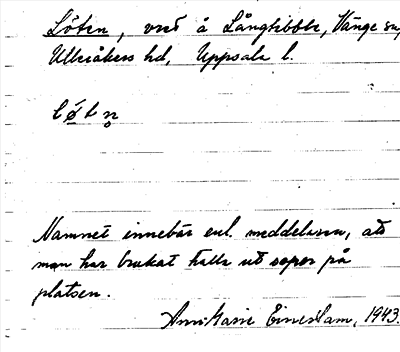 Löten, vred å Långtibble, Vänge sn,
Ulleråkers hd, Uppsala l.
løtn̥
Namnet innebär enl. meddelaren, att
man har brukat hälla ut sopor på
platsen.
Ann-Marie 1943.